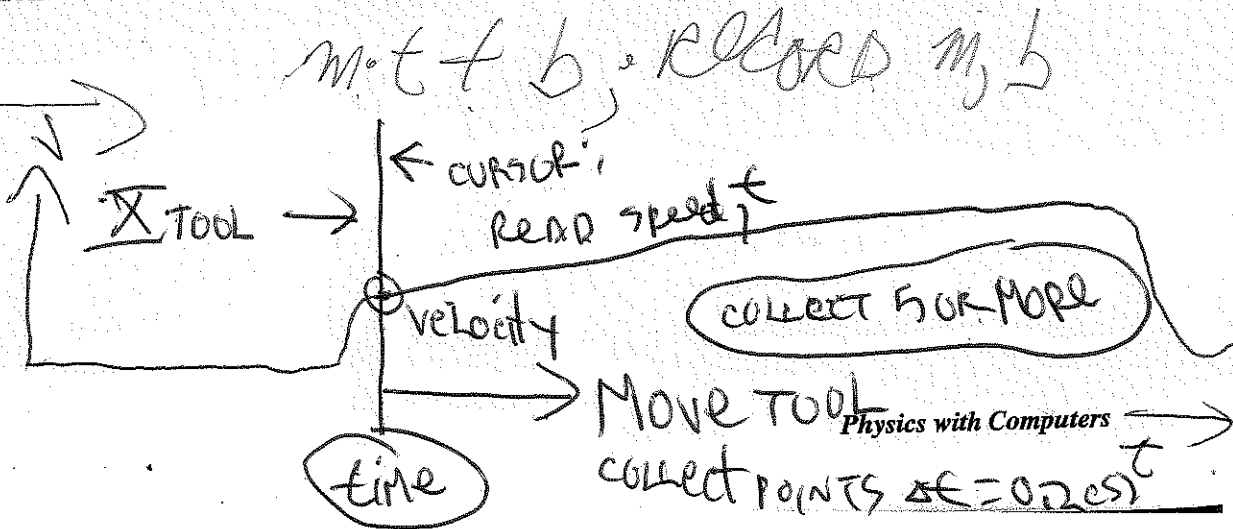 m·t + b, RECORD m, b
V
← CURSOR:
X TOOL →
READ speed, t
velocity
COLLECT 5 OR MORE
MOVE TOOL
Physics with Computers
time
COLLECT POINTS Δt = 0.2(s)
t